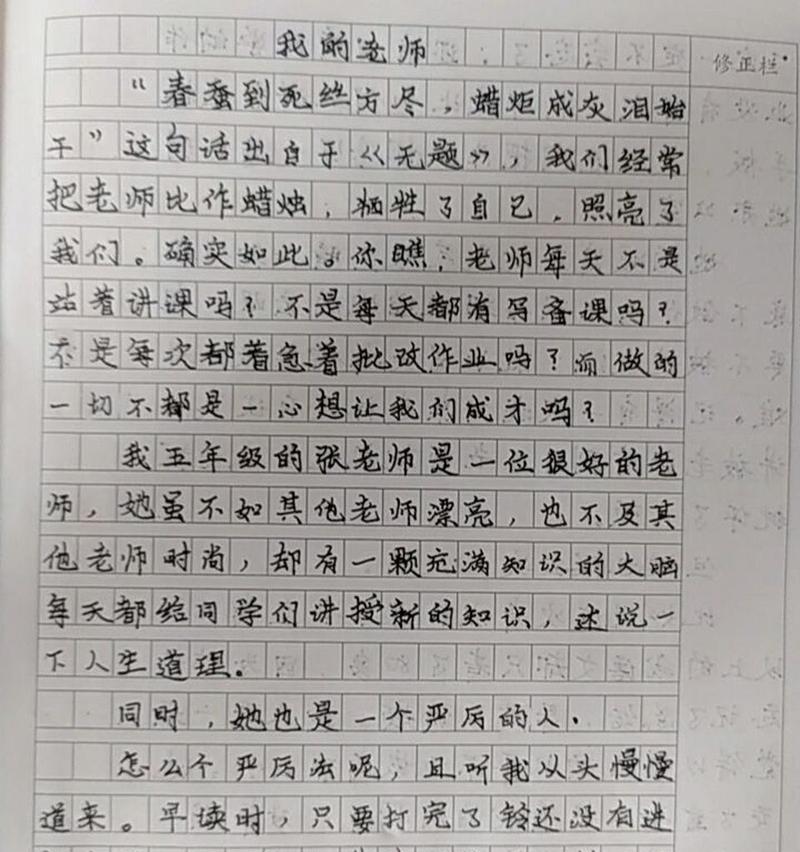 我的老师
修正栏
“春蚕到死丝方尽，蜡炬成灰泪始
干”这句话出自于《无题》，我们经常
把老师比作蜡烛，牺牲了自己，照亮了
我们。确实如此。你瞧，老师每天不是
站着讲课吗？不是每天都有写备课吗？
不是每次都着急着批改作业吗？而做的
一切不都是一心想让我们成才吗？
我五年级的张老师是一位很好的老
师，她虽不如其他老师漂亮，也不及其
他老师时尚，却有一颗充满知识的大脑
每天都给同学们讲授新的知识，述说一
下人生道理。
同时，她也是一个严厉的人.
怎么个严厉法呢，且听我从头慢慢
道来。早读时，只要打完了铃还没有进